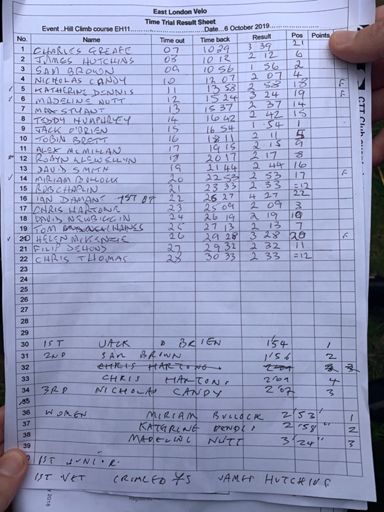 East London Velo
Time Trial Result Sheet
Event ..Hill Climb course EH11 Date...6 October 2019
No. Name Time out Time back Result Pos Points
1 CHARLES GREAFE 07 1029 3 39 21
2 JAMES HUTCHINS 08 1012 2 12 6
3 SAM BROWN 09 1056 1 56 2
4 NICHOLAS CANDY 10 1207 2 07 4
5 KATHERINE DENNIS 11 1358 2 58 18 F
6 MADELINE NUTT 12 1524 3 24 19 F
7 MAX STUANT 13 1537 2 37 14
8 TEDDY HUMPHREY 14 1642 2 42 15
9 JACK O'BRIEN 15 1654 1 54 1
10 TOBIN BRETT 16 1811 2 11 5
11 ALEX MCMILLAN 17 1915 2 15 9
12 ROBYN LLEWELLYN 18 2017 2 17 8
13 DAVID SMITH 19 2144 2 44 16
14 MIRIAM BULLOCK 20 2253 2 53 17 F
15 ROB CHAPLIN 21 2333 2 33 =12
16 IAN DAMANT 22 2627 4 27 22
17 CHRIS HARTONG 23 2509 2 09 3
18 DAVID NEWBIGGIN 24 2619 2 19 10
19 TOM HAINES 25 2713 2 13 7
20 HELEN MCKENZIE 26 2928 3 28 20 F
21 FILIP DEHOND 27 2932 2 32 11
22 CHRIS THOMAS 28 3033 2 33 =12
23
24
25
26
27
28
29
30 1ST JACK O BRIEN 1'54 1
31 2ND SAM BROWN 1'56 2
32 CHRIS HARTONG
33 CHRIS HARTONG 2'09 4
34 3RD NICHOLAS CANDY 2'07 3
35
36 WOMEN MIRIAM BULLOCK 2'53" 1
37 KATHRINE DENNIS 2'58" 2
38 MADELINE NUTT 3'24" 3
39
1ST JUNIOR.
1ST VET JAMES HUTCHINS